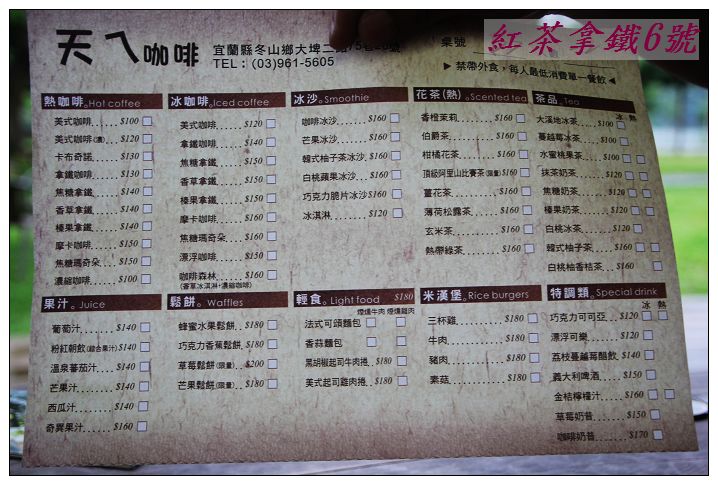 紅茶拿鐵6號
天ㄟ咖啡
宜蘭縣冬山鄉大埤二路75巷20號
TEL：(03)961-5605
桌號
▶ 禁帶外食，每人最低消費單一餐飲 ◀
熱咖啡。Hot coffee
美式咖啡......$100
美式咖啡(濃)..$120
卡布奇諾......$130
拿鐵咖啡......$130
焦糖拿鐵......$140
香草拿鐵......$140
榛果拿鐵......$140
摩卡咖啡......$150
焦糖瑪奇朵...$150
濃縮咖啡......$100
冰咖啡。Iced coffee
美式咖啡......$120
拿鐵咖啡......$140
焦糖拿鐵......$150
香草拿鐵......$150
榛果拿鐵......$150
摩卡咖啡......$160
焦糖瑪奇朵....$160
漂浮咖啡......$150
咖啡森林......$160
(香草冰淇淋+濃縮咖啡)
冰沙。Smoothie
咖啡冰沙......$160
芒果冰沙......$160
韓式柚子茶冰沙..$160
白桃蘋果冰沙....$160
巧克力脆片冰沙 $160
冰淇淋.........$120
花茶(熱)。Scented tea
香橙茉莉.......$160
伯爵茶.........$160
柑橘花茶.......$160
頂級阿里山比賽茶(限量) $160
薑花茶.........$160
薄荷松露茶....$160
玄米茶.........$160
熱帶綠茶......$160
茶品。Tea
冰 熱
大溪地冰茶....$100
蔓越莓冰茶....$100
水蜜桃果茶....$100
抹茶奶茶......$120
焦糖奶茶......$120
榛果奶茶......$120
白桃冰茶......$120
韓式柚子茶....$160
白桃柚香桔茶..$160
果汁。Juice
葡萄汁.......$140
粉紅朝飲(綜合果汁) $140
溫泉蕃茄汁...$140
芒果汁.......$140
西瓜汁.......$140
奇異果汁.....$160
鬆餅。Waffles
蜂蜜水果鬆餅..$180
巧克力香蕉鬆餅.$180
草莓鬆餅(限量)..$200
芒果鬆餅(限量)..$180
輕食。Light food $180
煙燻牛肉 煙燻雞肉
法式可頌麵包
香蒜麵包
黑胡椒起司牛肉捲..$180
美式起司雞肉捲..$180
米漢堡。Rice burgers
三杯雞.........$180
牛肉...........$180
豬肉...........$180
素菇...........$180
特調類。Special drink
冰 熱
巧克力可可亞..$120
漂浮可樂......$120
荔枝蔓越莓醋飲.$140
義大利啤酒....$150
金桔檸檬汁....$160
草莓奶昔......$150
咖啡奶昔......$170